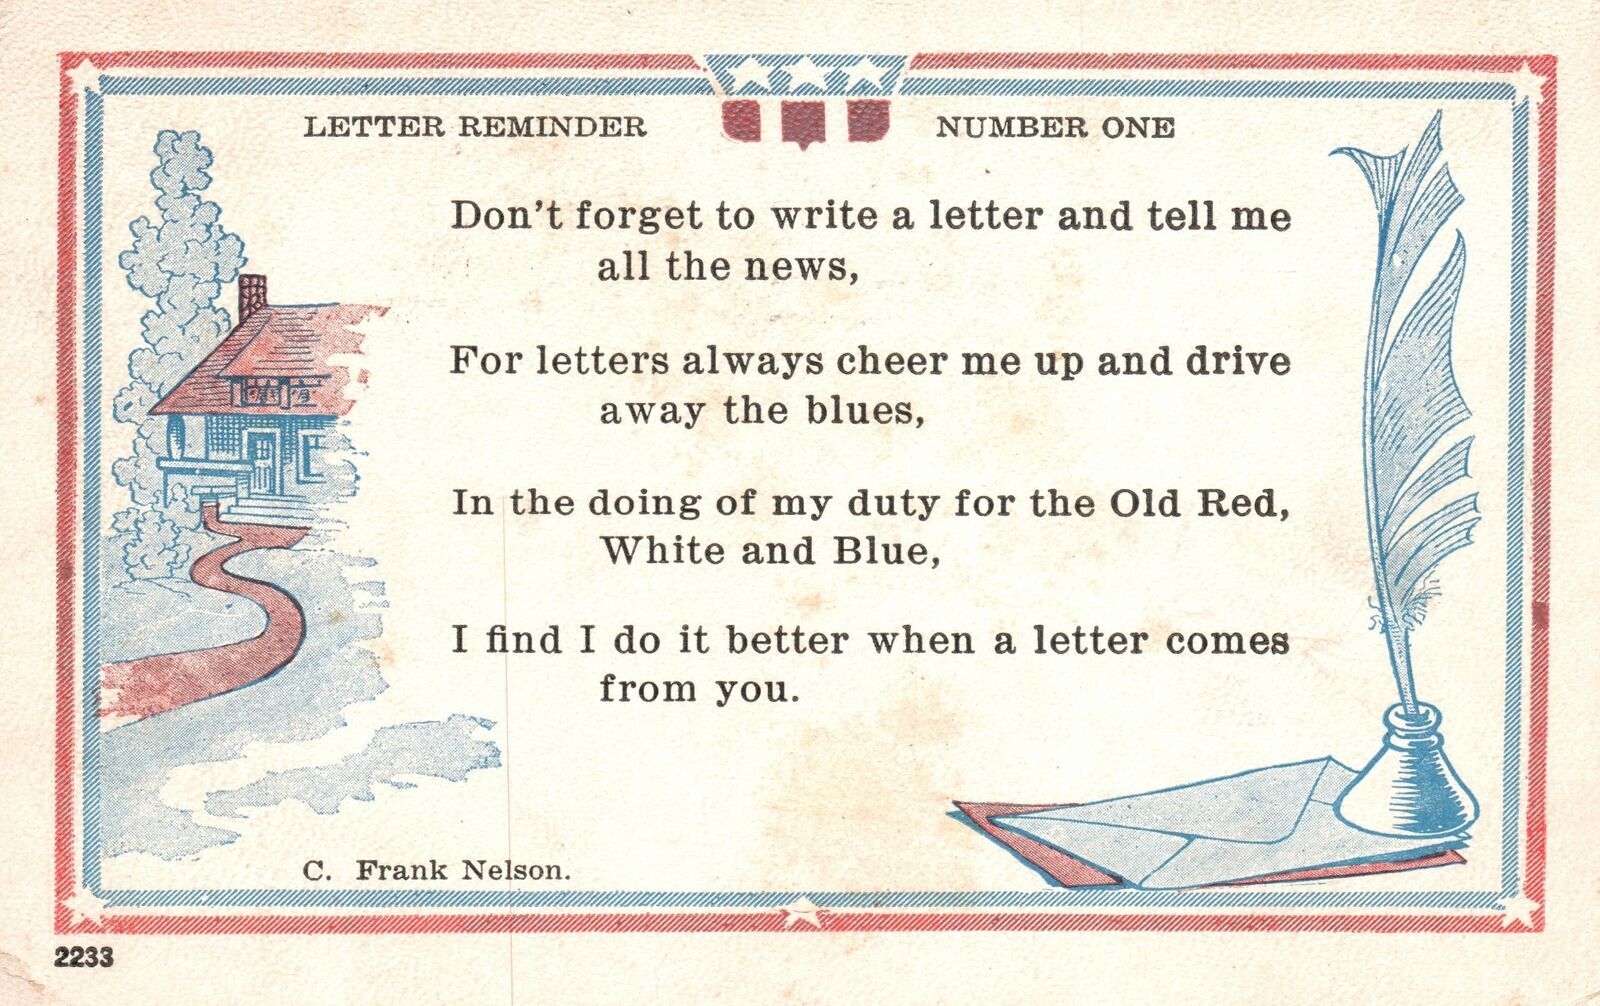 LETTER REMINDER NUMBER ONE
Don't forget to write a letter and tell me
all the news,
For letters always cheer me up and drive
away the blues,
In the doing of my duty for the Old Red,
White and Blue,
I find I do it better when a letter comes
from you.
C. Frank Nelson.
2233